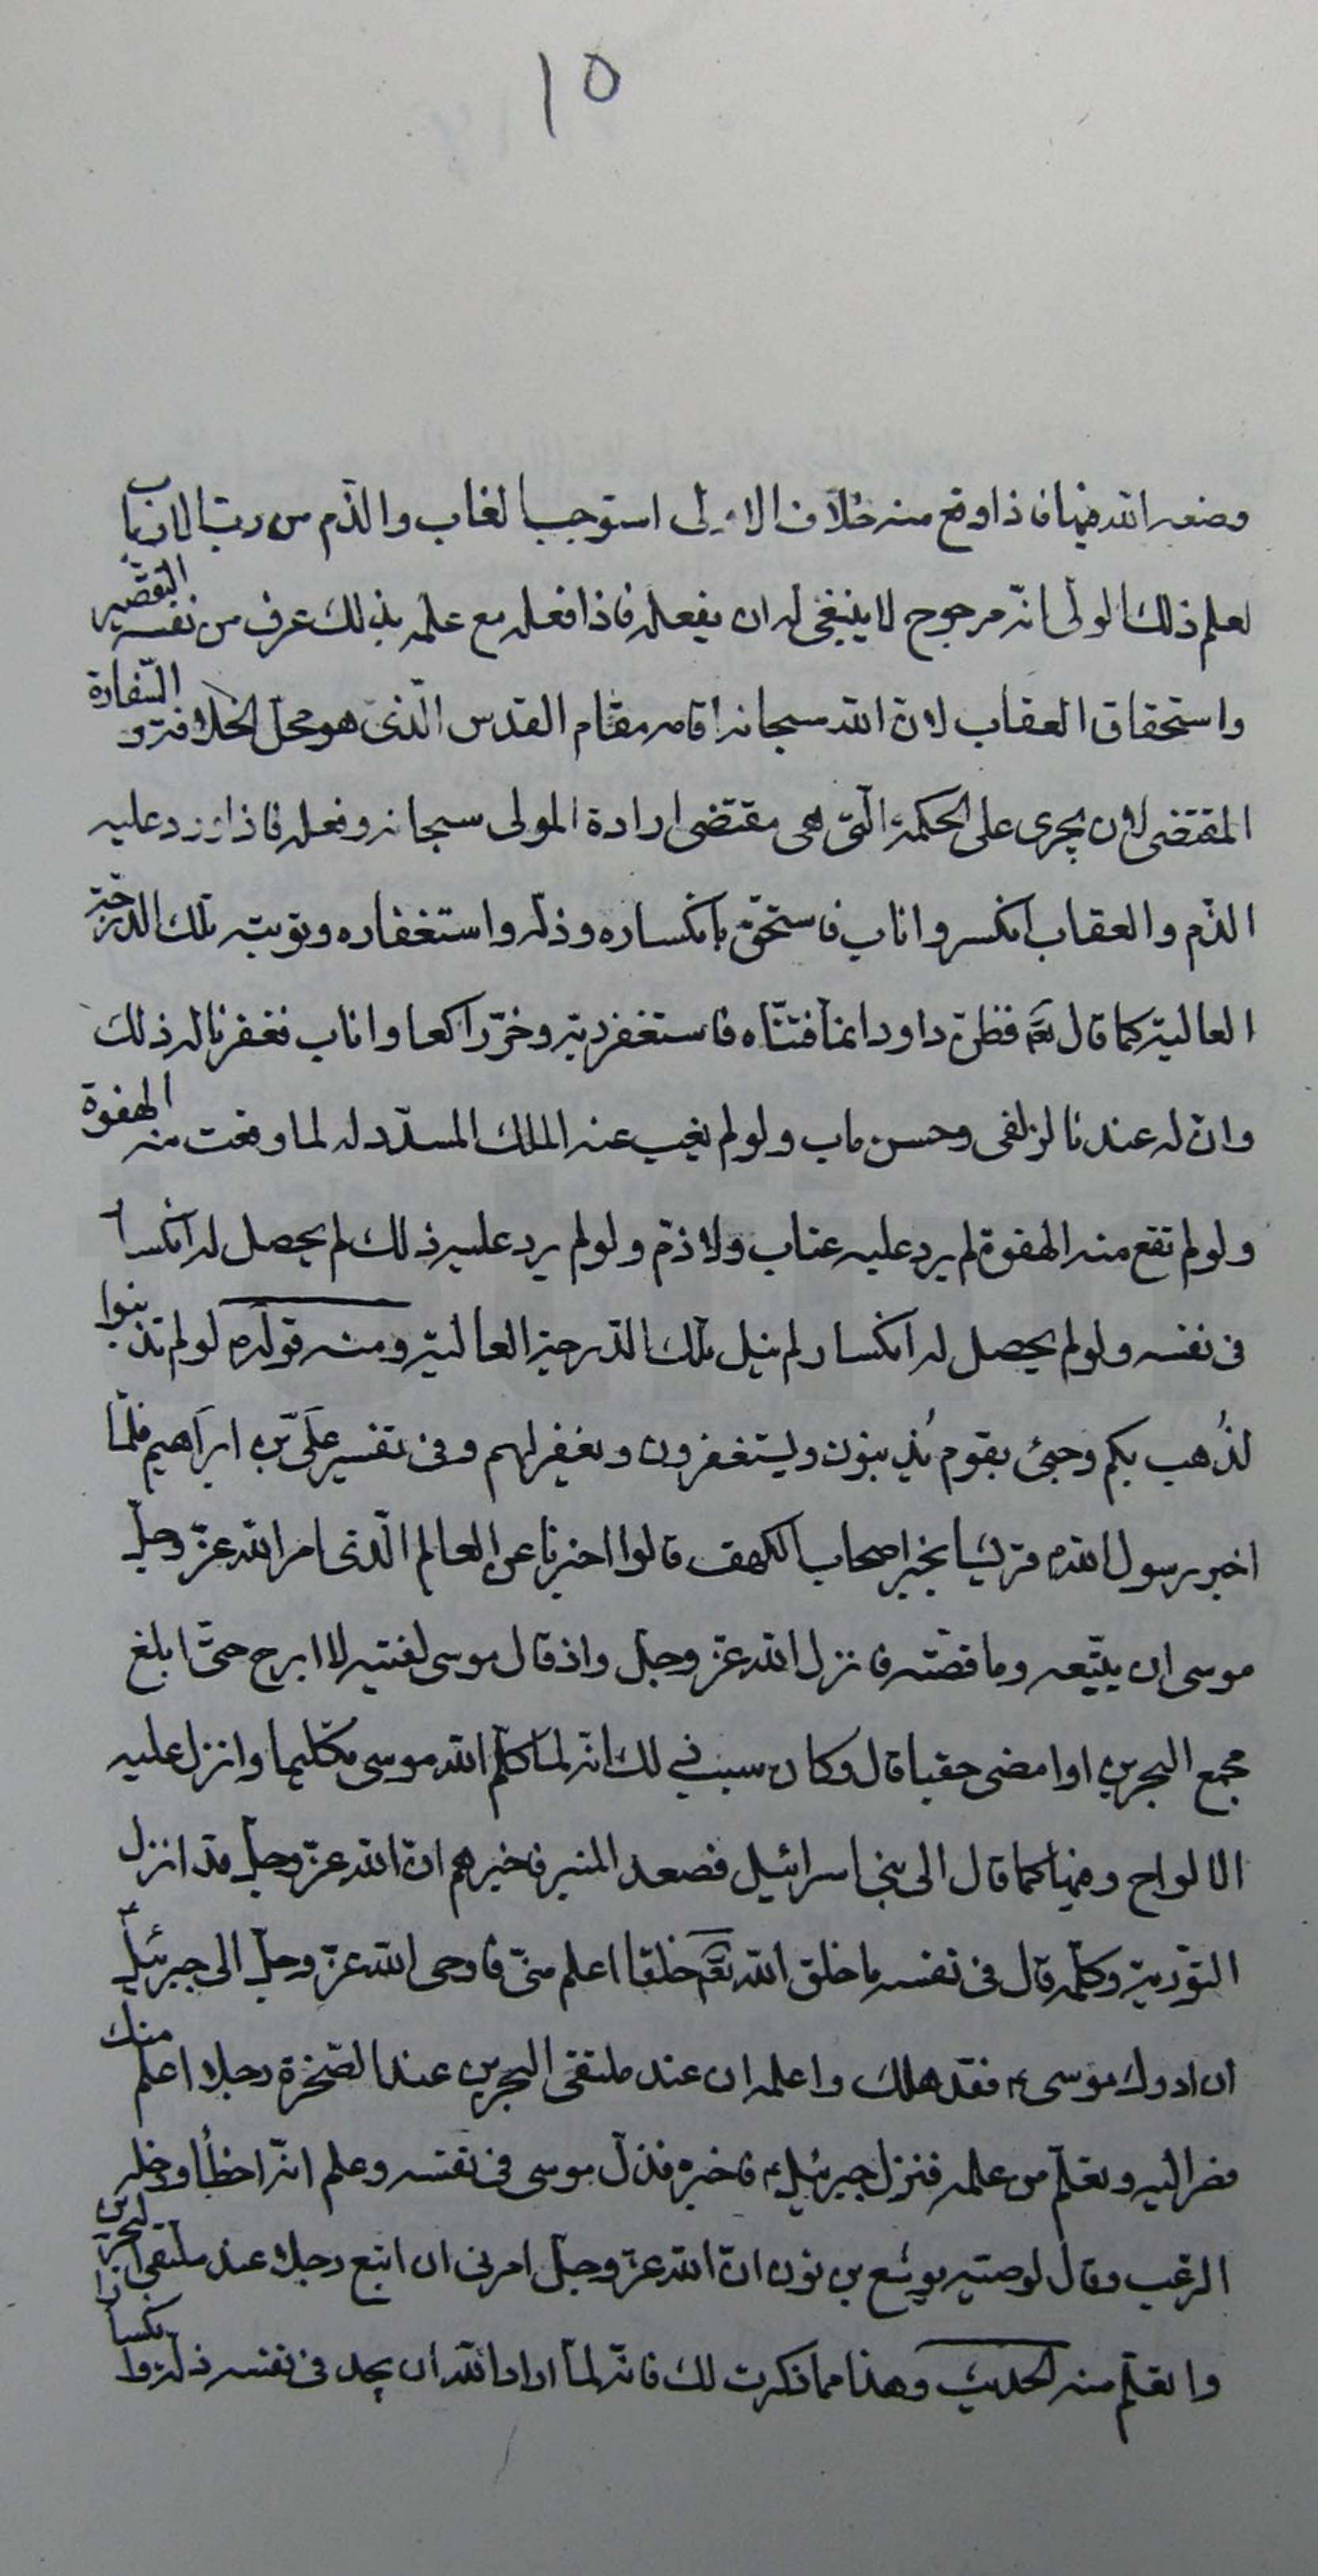 ١٥
وضعه الله فيها فاذا وقع منه خلاف الاولى استوجب العتاب والذم من رب الارباب
لعلم ذلك الولى انّه مرجوح لا ينبغى له ان يفعله فاذا فعله مع علمه بذلك عرف من نفسه التقصير
واستحقاق العقاب لانّ الله سبحانه اقامه مقام القدس الّذى هو محل الخلافة و السّفارة
المقتضى لان يجرى على الحكمة الّتى هى مقتضى ارادة المولى سبحانه وفعله فاذا ورد عليه
الذّم والعقاب انكسر واناب فاستحقّ بانكساره وذلّه واستغفاره وتوبته تلك الدّرجة
العالية كما قال تعَ فظنّ داود انما فتنّاه فاستغفر ربّه وخرّ راكعا واناب فغفرنا له ذلك
وانّ له عندنا لزلفى وحسن ماب ولو لم يغيب عنه الملك المسدّد له لما وقعت منه الهفوة
ولو لم تقع منه الهفوة لم يرد عليه عتاب ولا ذمّ ولو لم يرد عليه ذلك لم يحصل له انكسار
فى نفسه ولو لم يحصل له انكسار لم ينل تلك الدّرجة العالية ومنه قوله ص لو لم تذنبوا
لذُهب بكم وجئ بقوم يُذنبون ويستغفرون ويغفر لهم وفى تفسير علىّ بن ابراهيم فلمّا
اخبر رسول الله ص قريشا بخبر اصحاب الكهف قالوا اخبرنا عن العالم الّذى امر الله عزّ وجلّ
موسى ان يتّبعه وما قصّته فانزل الله عزّ وجلّ واذ قال موسى لفتيه لا ابرح حتّى ابلغ
مجمع البحرين او امضى حقبا قال وكان سبب ذلك انّه لمّا كلّم الله موسى تكليما وانزل عليه
الالواح وفيها كما قال الى بنى اسرائيل فصعد المنبر فاخبرهم انّ الله عزّ وجلّ قد انزل
التّورية وكلّمه قال فى نفسه ما خلق الله تعَ خلقا اعلم منّى فاوحى الله عزّ وجلّ الى جبرئيل
ان ادرك موسى ع فقد هلك واعلمه ان عند ملتقى البحرين عند الصّخرة رجلا اعلم منك
فصر اليه وتعلّم من علمه فنزل جبرئيل ع فاخبره فذلّ موسى فى نفسه وعلم انّه اخطأ ودخله
الرّعب وقال لوصيّه يوشع بن نون انّ الله عزّ وجلّ امرنى ان اتبع رجلا عند ملتقى البحرين
واتعلّم منه الحديث وهذا مما ذكرت لك فانّه لمّا اراد الله ان يجد فى نفسه ذلّة وانكسارا